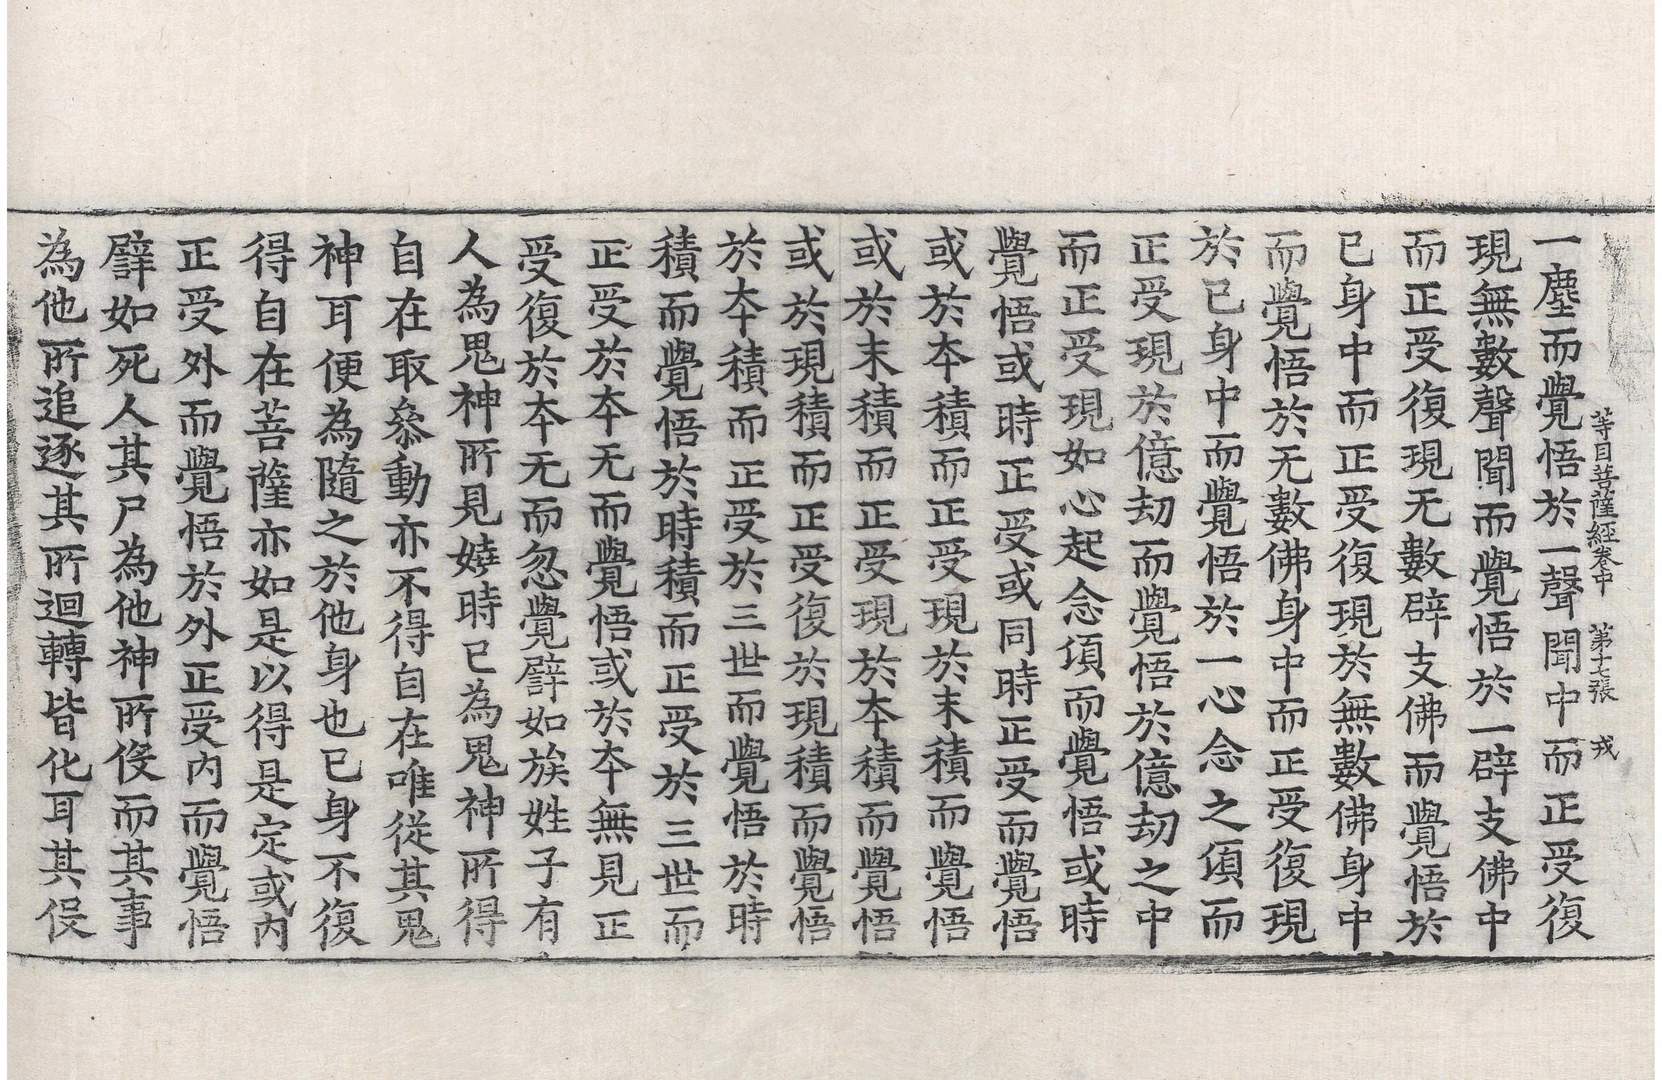 等目菩薩經卷中 第十七張 戎
一塵而覺悟於一聲聞中而正受復
現無數聲聞而覺悟於一辟支佛中
而正受復現无數辟支佛而覺悟於
已身中而正受復現於無數佛身中
而覺悟於无數佛身中而正受復現
於已身中而覺悟於一心念之頃而
正受現於億劫而覺悟於億劫之中
而正受現如心起念頃而覺悟或時
覺悟或時正受或同時正受而覺悟
或於夲積而正受現於末積而覺悟
或於末積而正受現於夲積而覺悟
或於現積而正受復於現積而覺悟
於夲積而正受於三世而覺悟於時
積而覺悟於時積而正受於三世而
正受於夲无而覺悟或於夲無見正
受復於夲无而忽覺譬如族姓子有
人為鬼神所見嬈時已為鬼神所得
自在取叅動亦不得自在唯從其鬼
神耳便為隨之於他身也已身不復
得自在菩薩亦如是以得是定或內
正受外而覺悟於外正受內而覺悟
譬如死人其尸為他神所伇而其事
為他所追逐其所迴轉皆化耳其伇